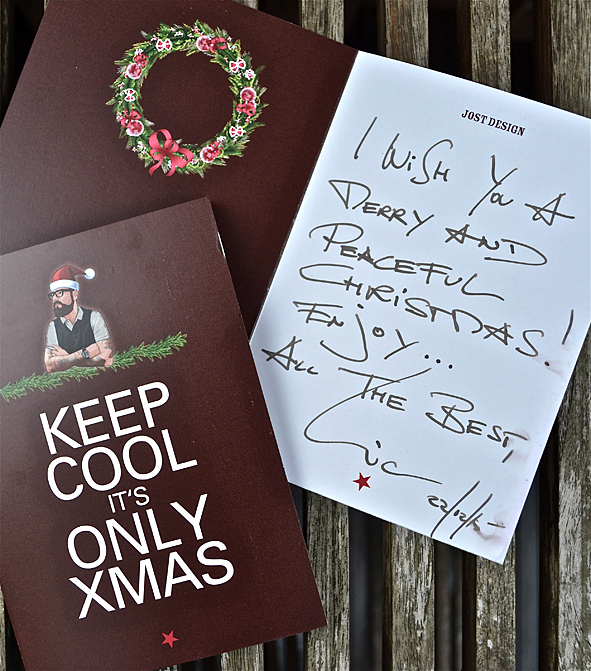 JOST DESIGN
I WiSH You A
MERRY AND
PEACEFUL
CHRiSTMAS!
ENjOY...
ALL THE BEST,
KEEP
COOL
IT'S
ONLY
XMAS